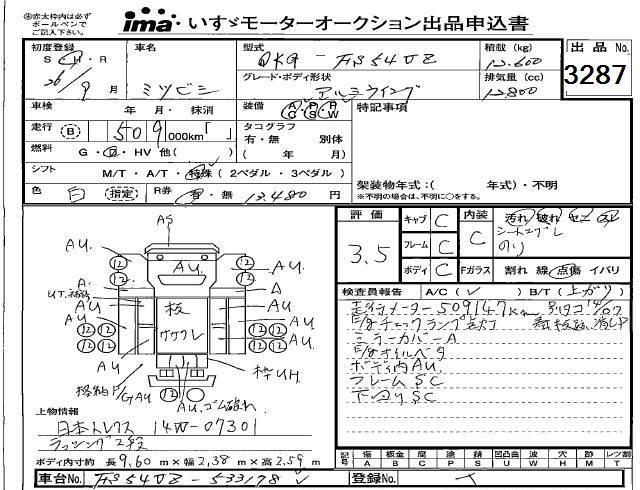 ※赤太枠内は必ず
ボールペンで
ご記入下さい。
ima いすゞモーターオークション出品申込書
初度登録 S・H・R 26年 9月
車名 ミツビシ
型式 QKG-FS54VZ
グレード・ボディ形状 アルミウイング
積載 (kg) 12,600
排気量 (cc) 12,800
出品 No. 3287
車検 年 月・ 抹消
装備 AC・PS・PW
特記事項
走行 B 509 000km「 」
タコグラフ 有・無 別体 ( 年 月)
燃料 G・D・HV 他( )
シフト M/T・A/T・特殊 (2ペダル・3ペダル)
架装物年式:( 年式)・不明
※不明の場合は、不明に○をする。
色 白 (指定) R券 有・無 13,480 円
評価 3.5
キャブ C
フレーム C
ボディ C
内装 C
汚れ 破れ セエ 凸凹
シートコゲレ
のり
Fガラス 割れ 線 点傷 イバリ
検査員報告 A/C(✓) B/T(上がり)
走行メーター509147km
E/gチェックランプ点灯
ミラーカバーA
E/gオイルベタ
ボディ内AU.
フレームSC
下回りSC
AS
AU.
AU
A
板
ササクレ
枠UH
格納F/GAU
AU.ゴム破れ
上物情報
日本トレクス 14W-07301
ラッシング2段
ボディ内寸約 長9.60m×幅2.38m×高2.59m
記号 傷A 板金B 腐C 塗P 錆S 凹凸曲U 波W 穴H 欠M ×レツ割T
車台No. FS54VZ-533178
登録No.